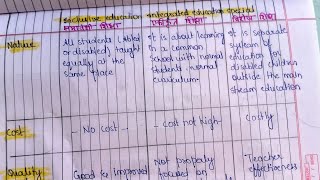 Inclusive education Integrated education Special
समावेशी शिक्षा एकीकृत शिक्षा विशिष्ट शिक्षा
Nature
All students (abled
or disabled) taught
equally at the
same place
It is about learning
in a common
school with normal
students normal
curriculum
It is separate
system
education for
disabled children
outside the main
stream education
Cost
No cost
cost not high
Costly
Quality
Good & improved
Not properly
focused on
Teacher
effectiveness